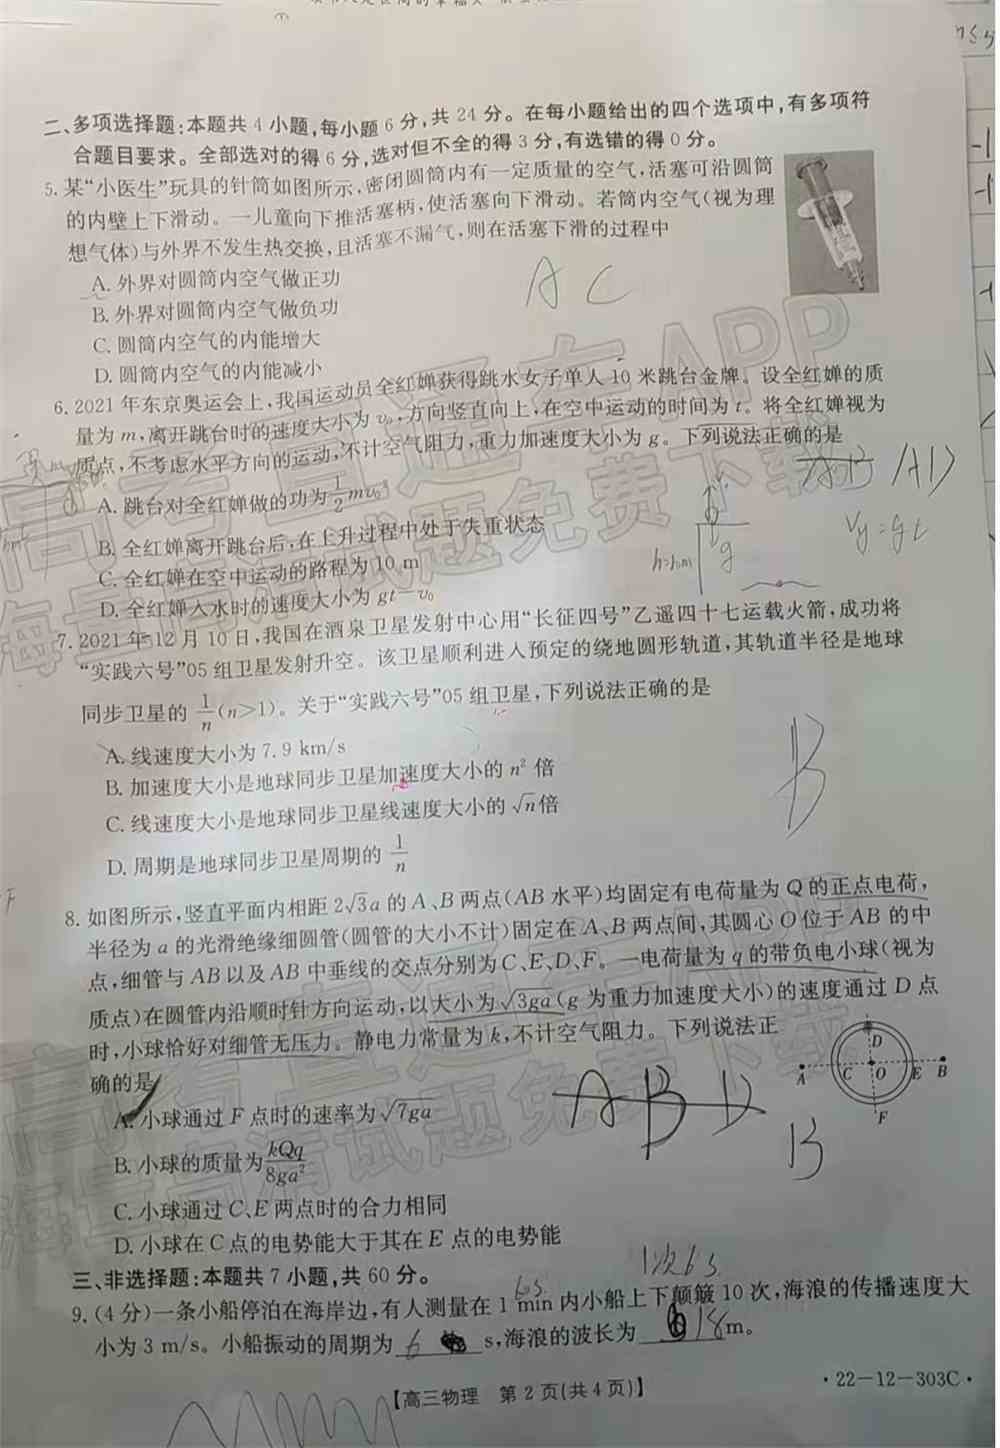 二、多项选择题:本题共 4 小题,每小题 6 分,共 24 分。在每小题给出的四个选项中,有多项符
合题目要求。全部选对的得 6 分,选对但不全的得 3 分,有选错的得 0 分。
5. 某“小医生”玩具的针筒如图所示,密闭圆筒内有一定质量的空气,活塞可沿圆筒
的内壁上下滑动。一儿童向下推活塞柄,使活塞向下滑动。若筒内空气(视为理
想气体)与外界不发生热交换,且活塞不漏气,则在活塞下滑的过程中
A C
A. 外界对圆筒内空气做正功
B. 外界对圆筒内空气做负功
C. 圆筒内空气的内能增大
D. 圆筒内空气的内能减小
6. 2021 年东京奥运会上,我国运动员全红婵获得跳水女子单人 10 米跳台金牌。设全红婵的质
量为 m,离开跳台时的速度大小为 v₀,方向竖直向上,在空中运动的时间为 t。将全红婵视为
质点,不考虑水平方向的运动,不计空气阻力,重力加速度大小为 g。下列说法正确的是
AB AD
A. 跳台对全红婵做的功为 1/2 mv₀²
B. 全红婵离开跳台后,在上升过程中处于失重状态
C. 全红婵在空中运动的路程为 10 m
D. 全红婵入水时的速度大小为 gt－v₀
g
h=10m
Vy=gt
7. 2021 年 12 月 10 日,我国在酒泉卫星发射中心用“长征四号”乙遥四十七运载火箭,成功将
“实践六号”05 组卫星发射升空。该卫星顺利进入预定的绕地圆形轨道,其轨道半径是地球
同步卫星的 1/n (n>1)。关于“实践六号”05 组卫星,下列说法正确的是
A. 线速度大小为 7.9 km/s
B. 加速度大小是地球同步卫星加速度大小的 n² 倍
C. 线速度大小是地球同步卫星线速度大小的 √n倍
D. 周期是地球同步卫星周期的 1/n
B
8. 如图所示,竖直平面内相距 2√3a 的 A、B 两点(AB 水平)均固定有电荷量为 Q 的正点电荷,
半径为 a 的光滑绝缘细圆管(圆管的大小不计)固定在 A、B 两点间,其圆心 O 位于 AB 的中
点,细管与 AB 以及 AB 中垂线的交点分别为 C、E、D、F。一电荷量为 q 的带负电小球(视为
质点)在圆管内沿顺时针方向运动,以大小为√3ga(g 为重力加速度大小)的速度通过 D 点
时,小球恰好对细管无压力。静电力常量为 k,不计空气阻力。下列说法正
确的是
A. 小球通过 F 点时的速率为 √7ga
B. 小球的质量为 kQq/8ga²
C. 小球通过 C、E 两点时的合力相同
D. 小球在 C 点的电势能大于其在 E 点的电势能
A B D
B
D
A C O E B
F
三、非选择题:本题共 7 小题,共 60 分。
6s 1次6s
9. (4 分)一条小船停泊在海岸边,有人测量在 1 min 内小船上下颠簸 10 次,海浪的传播速度大
小为 3 m/s。小船振动的周期为 6 s,海浪的波长为 18 m。
【高三物理 第 2 页(共 4 页)】
·22－12－303C·
高考直通车APP
海量高清试题免费下载
高考直通车APP
海量高清试题免费下载